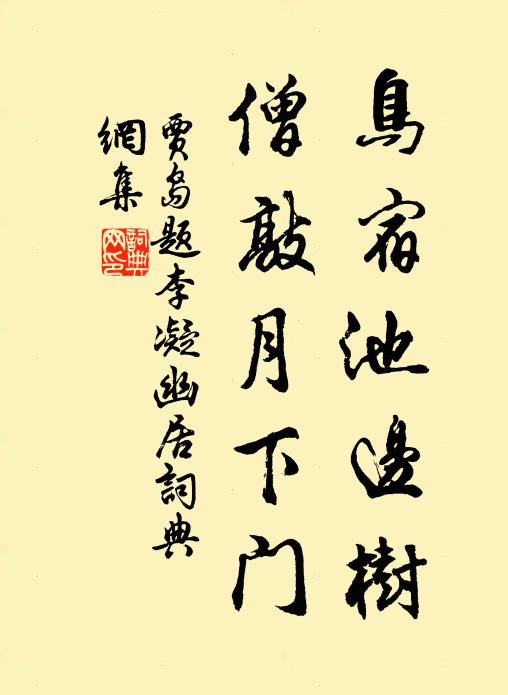 鳥宿池邊樹
僧敲月下门
賈島題李凝幽居詞典
網集
詞典
网印